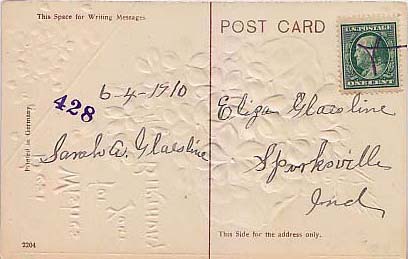 This Space for Writing Messages
POST CARD
U.S. POSTAGE
ONE CENT
428
6-4-1910
Sarah A. Glaesline
Eliza Glaesline
Sparksville
Ind
Printed in Germany
2204
This Side for the address only.